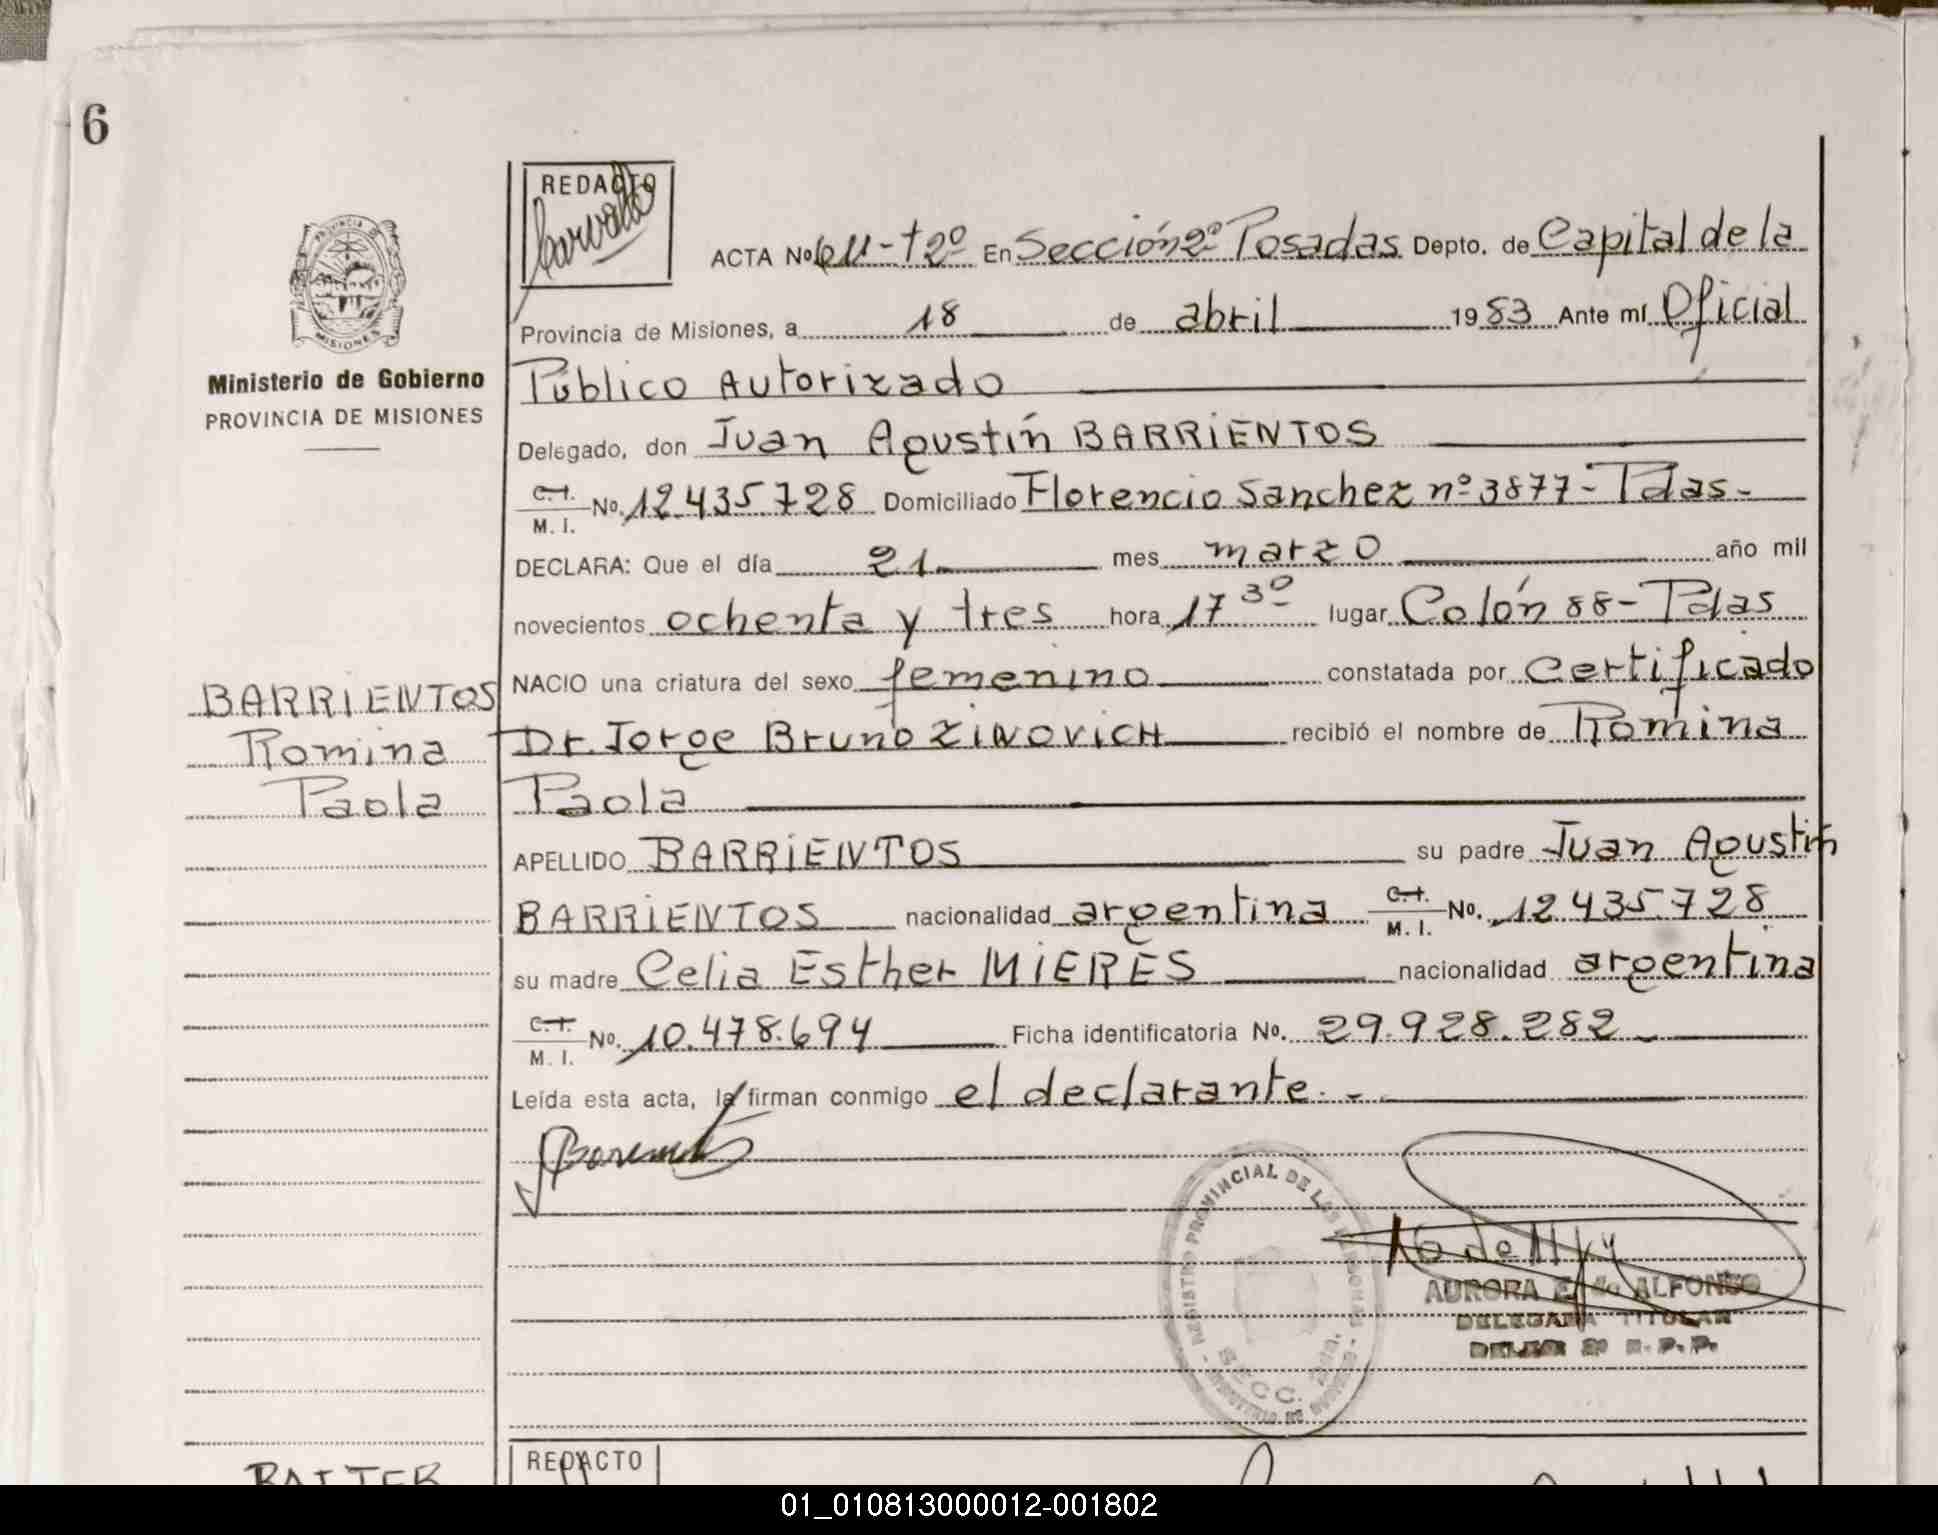 6
REDACTO
PROVINCIA DE
MISIONES
Ministerio de Gobierno
PROVINCIA DE MISIONES
ACTA No 611-T2º En Sección 2º Posadas Depto. de Capital de la
Provincia de Misiones, a 18 de abril 1983 Ante mí Oficial
Público Autorizado
Delegado, don Juan Agustín BARRIENTOS
C.I. M. I. No. 12.435.728 Domiciliado Florencio Sanchez nº 3877 - Pdas -
DECLARA: Que el día 21 mes marzo año mil
novecientos ochenta y tres hora 17 30 lugar Colón 88 - Pdas
NACIO una criatura del sexo femenino constatada por Certificado
Dr. Jorge Bruno ZINOVICH recibió el nombre de Romina
Paola
BARRIENTOS
Romina
Paola
APELLIDO BARRIENTOS su padre Juan Agustín
BARRIENTOS nacionalidad argentina C.I. M. I. No. 12.435.728
su madre Celia Esther MIERES nacionalidad argentina
C.I. M. I. No. 10.478.694 Ficha identificatoria No. 29.928.282 -
Leída esta acta, la firman conmigo el declarante. -
REGISTRO PROVINCIAL DE LAS PERSONAS
SECC. 2da.
AURORA E. de ALFONSO
DELEGADA TITULAR
REDACTO
01_010813000012-001802